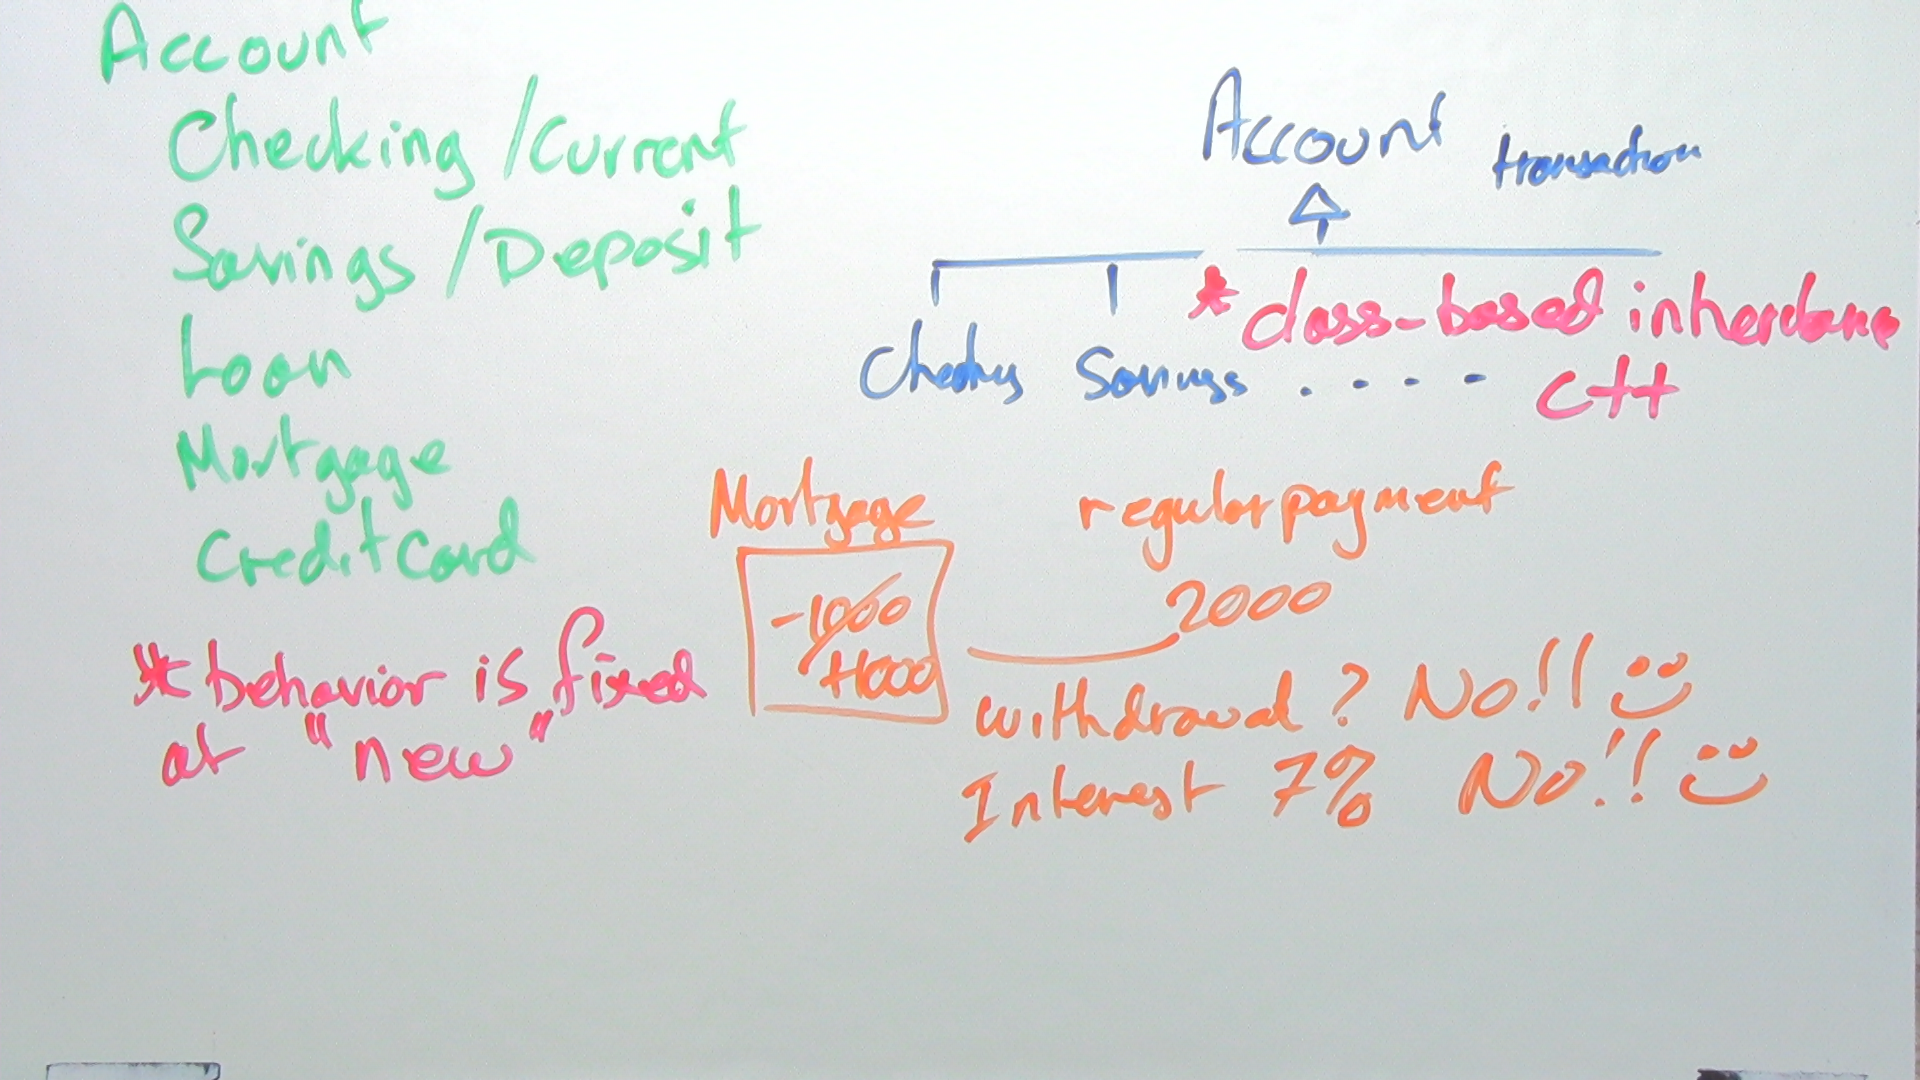 Account
Checking / Current
Savings / Deposit
Loan
Mortgage
Credit Card
* behavior is fixed
at "new"
Account transaction
* class-based inheritance
Checking Savings . . . .
C++
Mortgage
-1000
+1000
regular payment
2000
withdrawal? No!!
Interest 7% No!!